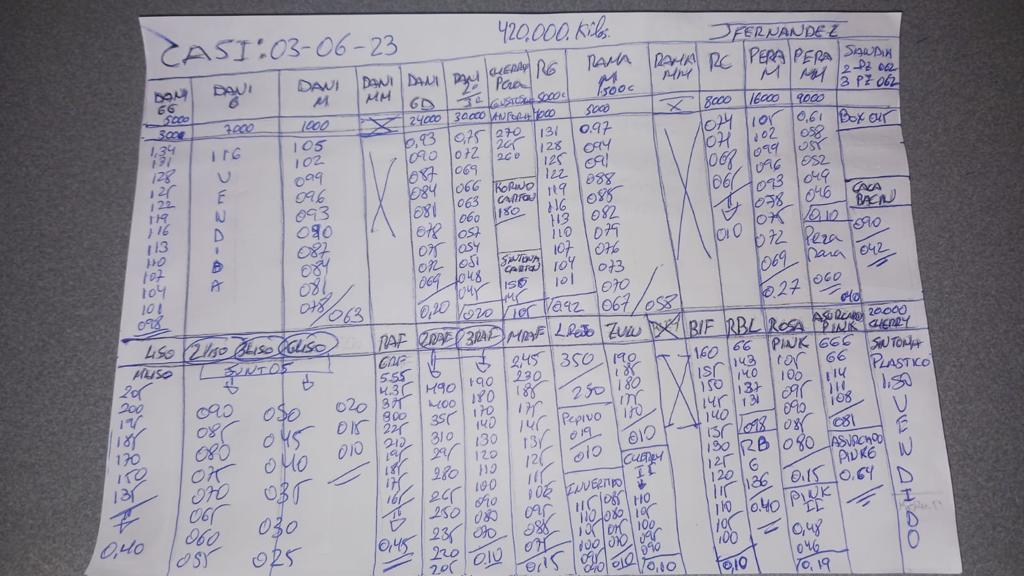 CASI: 03-06-23
420.000. Kilos.
JFERNANDEZ
DANI GG
5000
3000
134
131
128
125
122
119
116
113
110
107
104
101
098
DANI G
7000
116
U
E
N
D
I
B
A
DANI M
1000
105
102
099
096
093
090
087
084
081
078/063
DANI MM
X
DANI GD
24000
0,93
090
087
084
081
078
075
072
069
0,20
30000
0,75
072
069
066
063
060
057
054
051
048
045
0,20
CHERRY PERA
270
265
260
CARTON
180
SINTONA CARTON
150
145
105
RG
5000c
131
128
125
122
119
116
113
110
107
104
101
0,92
RAMA M
1500c
5000
0.97
094
091
088
085
082
079
076
073
070
067/058
RAMA MM
X
RC
8000
074
071
068
065
010
PERA M
16000
105
102
099
096
093
078
075
072
069
0,27
PERA MM
9000
0,61
058
055
052
049
046
0,10
Pera
060
040
SANDIA
2 PZ 062
3 PZ 062
Box 045
CACA BACIN
090
042
LISO
MLISO
205
200
195
185
170
150
135
0,40
2LISO
3LISO
6LISO
JUNTOS
090
085
080
075
070
065
060
055
050
045
040
035
030
025
020
015
010
RAF
625
555
435
375
300
225
210
195
185
175
165
0,45
2RAF
490
400
355
310
295
280
265
250
235
220
205
3RAF
190
180
170
140
130
120
110
100
090
080
070
0,10
MRAF
245
230
185
175
145
135
125
115
105
095
085
075
0,15
L ROJO
350
250
PEPINO
019
010
INVERTIDO
ZUCO
190
185
180
175
170
010
CHERRY II
110
110
105
100
095
090
0,10
BIF
160
155
150
145
140
135
130
125
120
115
110
105
100
RBL
66
143
140
137
131
098
RB
G
136
0.40
0,10
ROSA
PINK
105
100
095
090
085
080
0.15
PINK II
0,48
046
0,19
ASURCADO PINK
666
66
114
111
108
081
ASURCADO PIDRE
0.64
20.000
CHERRY
SINTONA
PLASTICO
150
V
E
N
D
I
D
O